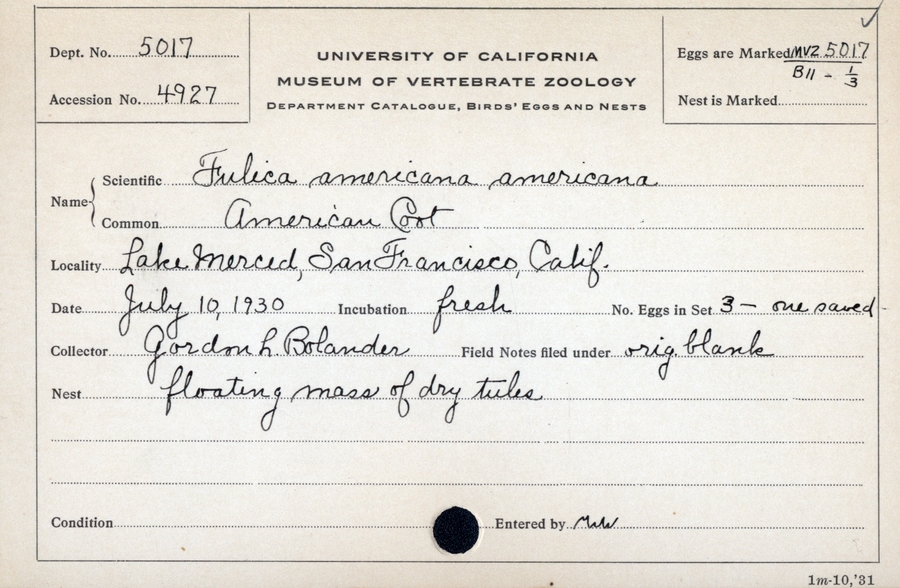 Dept. No. 5017
Accession No. 4927
UNIVERSITY OF CALIFORNIA
MUSEUM OF VERTEBRATE ZOOLOGY
DEPARTMENT CATALOGUE, BIRDS' EGGS AND NESTS
Eggs are Marked MVZ 5017
B11 - 1/3
Nest is Marked
Name
Scientific Fulica americana americana
Common American Coot
Locality Lake Merced, San Francisco, Calif.
Date July 10, 1930 Incubation fresh No. Eggs in Set 3 - one saved -
Collector Gordon L. Bolander Field Notes filed under orig. blank
Nest floating mass of dry tules
Condition Entered by
1m-10,'31